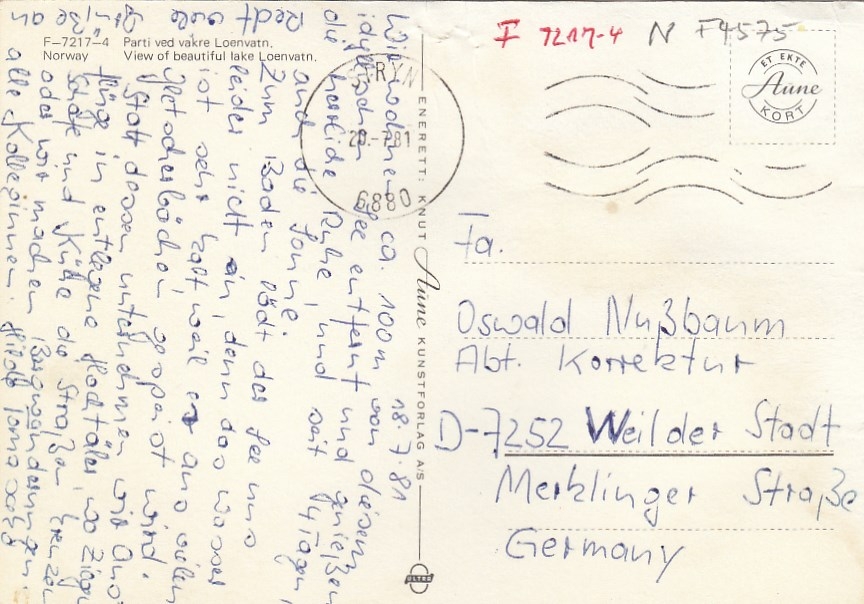 F-7217-4 Parti ved vakre Loenvatn.
Norway View of beautiful lake Loenvatn.
18.7.81
Wir wohnen ca. 100m von diesem
idyllischen See entfernt und genießen
die herrliche Ruhe, und seit 4 Tagen
auch die Sonne.
Zum Baden lädt der See uns
leider nicht ein, denn das Wasser
ist sehr kalt weil er aus vielen
Gletscherbächen gespeist wird.
Statt dessen unternehmen wir Aus-
flüge in entlegene Hochtäler, wo Ziegen
Schafe und Kühe die Straßen kreuzen
oder wir machen Bergwanderungen.
Recht viele Grüße an
alle Kolleginnen.
ENERETT: KNUT Aune KUNSTFORLAG A/S
ULTRA
F 7217-4 N F4575
ET EKTE
Aune
KORT
STRYN
20.-7.81
6880
Fa.
Oswald Nußbaum
Abt. Korrektur
D-7252 Weil der Stadt
Merklinger Straße
Germany